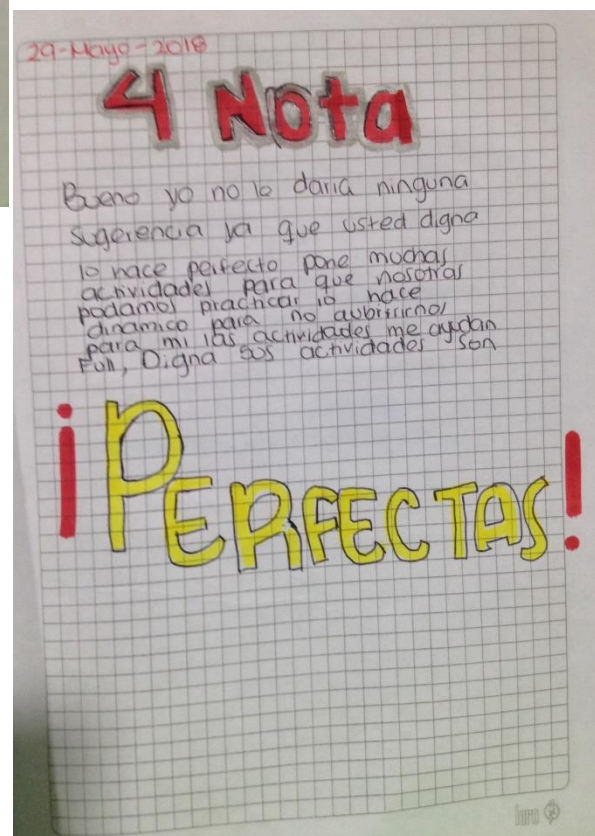 29-Mayo-2018
4 Nota
Bueno yo no le daria ninguna
sugerencia ya que usted digna
lo hace perfecto pone muchas
actividades para que nosotras
podamos practicar lo hace
dinamico para no aubrrirnos
para mi las actividades me ayudan
Full, Digna sus actividades son
¡PERFECTAS!